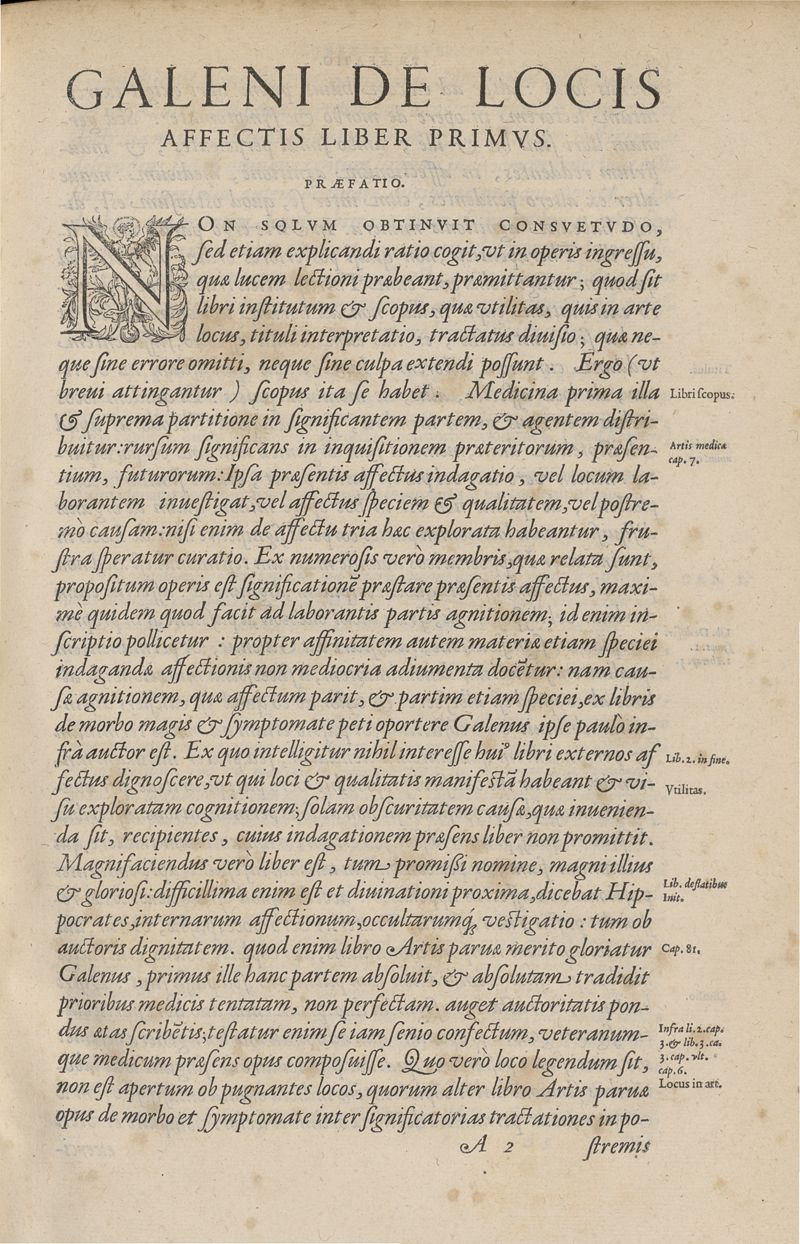 GALENI DE LOCIS
AFFECTIS LIBER PRIMVS.
PRÆFATIO.
NON SOLVM OBTINVIT CONSVETVDO,
ſed etiam explicandi ratio cogit, vt in operis ingreſſu,
quæ lucem lectioni præbeant, præmittantur; quod ſit
libri inſtitutum & ſcopus, quæ vtilitas, quis in arte
locus, tituli interpretatio, tractatus diuiſio; quæ ne-
que ſine errore omitti, neque ſine culpa extendi poſſunt. Ergo (vt
breui attingantur) ſcopus ita ſe habet. Medicina prima illa
Libri ſcopus.
& ſuprema partitione in ſignificantem partem, & agentem diſtri-
buitur: rurſum ſignificans in inquiſitionem præteritorum, præſen-
Artis medicæ
cap. 7.
tium, futurorum: Ipſa præſentis affectus indagatio, vel locum la-
borantem inueſtigat, vel affectus ſpeciem & qualitatem, vel poſtre-
mò cauſam: niſi enim de affectu tria hæc explorata habeantur, fru-
ſtra ſperatur curatio. Ex numeroſis verò membris, quæ relata ſunt,
propoſitum operis eſt ſignificationē præſtare præſentis affectus, maxi-
mè quidem quod facit ad laborantis partis agnitionem; id enim in-
ſcriptio pollicetur: propter affinitatem autem materiæ etiam ſpeciei
indagandæ affectionis non mediocria adiumenta docētur: nam cau-
ſæ agnitionem, quæ affectum parit, & partim etiam ſpeciei, ex libris
de morbo magis & ſymptomate peti oportere Galenus ipſe paulò in-
frà auctor eſt. Ex quo intelligitur nihil intereſſe huiꝰ libri externos af
Lib. 2. in fine.
fectus dignoſcere, vt qui loci & qualitatis manifeſtā habeant & vi-
Vtilitas.
ſu exploratam cognitionem; ſolam obſcuritatem cauſæ, quæ inuenien-
da ſit, recipientes, cuius indagationem præſens liber non promittit.
Magnifaciendus verò liber eſt, tum promiſsi nomine, magni illius
& glorioſi: difficillima enim eſt et diuinationi proxima, dicebat Hip-
Lib. de flatibus
init.
pocrates, internarum affectionum, occultarumq́ꝫ veſtigatio: tum ob
auctoris dignitatem. quod enim libro Artis paruæ merito gloriatur
Cap. 81.
Galenus, primus ille hanc partem abſoluit, & abſolutam tradidit
prioribus medicis tentatam, non perfectam. auget auctoritatis pon-
dus ætas ſcribētis; teſtatur enim ſe iam ſenio confectum, veteranum-
Infra li. 2. cap.
3. & lib. 3. ca.
que medicum præſens opus compoſuiſſe. Quo verò loco legendum ſit,
3. cap. vlt.
cap. 6.
non eſt apertum ob pugnantes locos, quorum alter libro Artis paruæ
Locus in art.
opus de morbo et ſymptomate inter ſignificatorias tractationes in po-
A 2 ſtremis